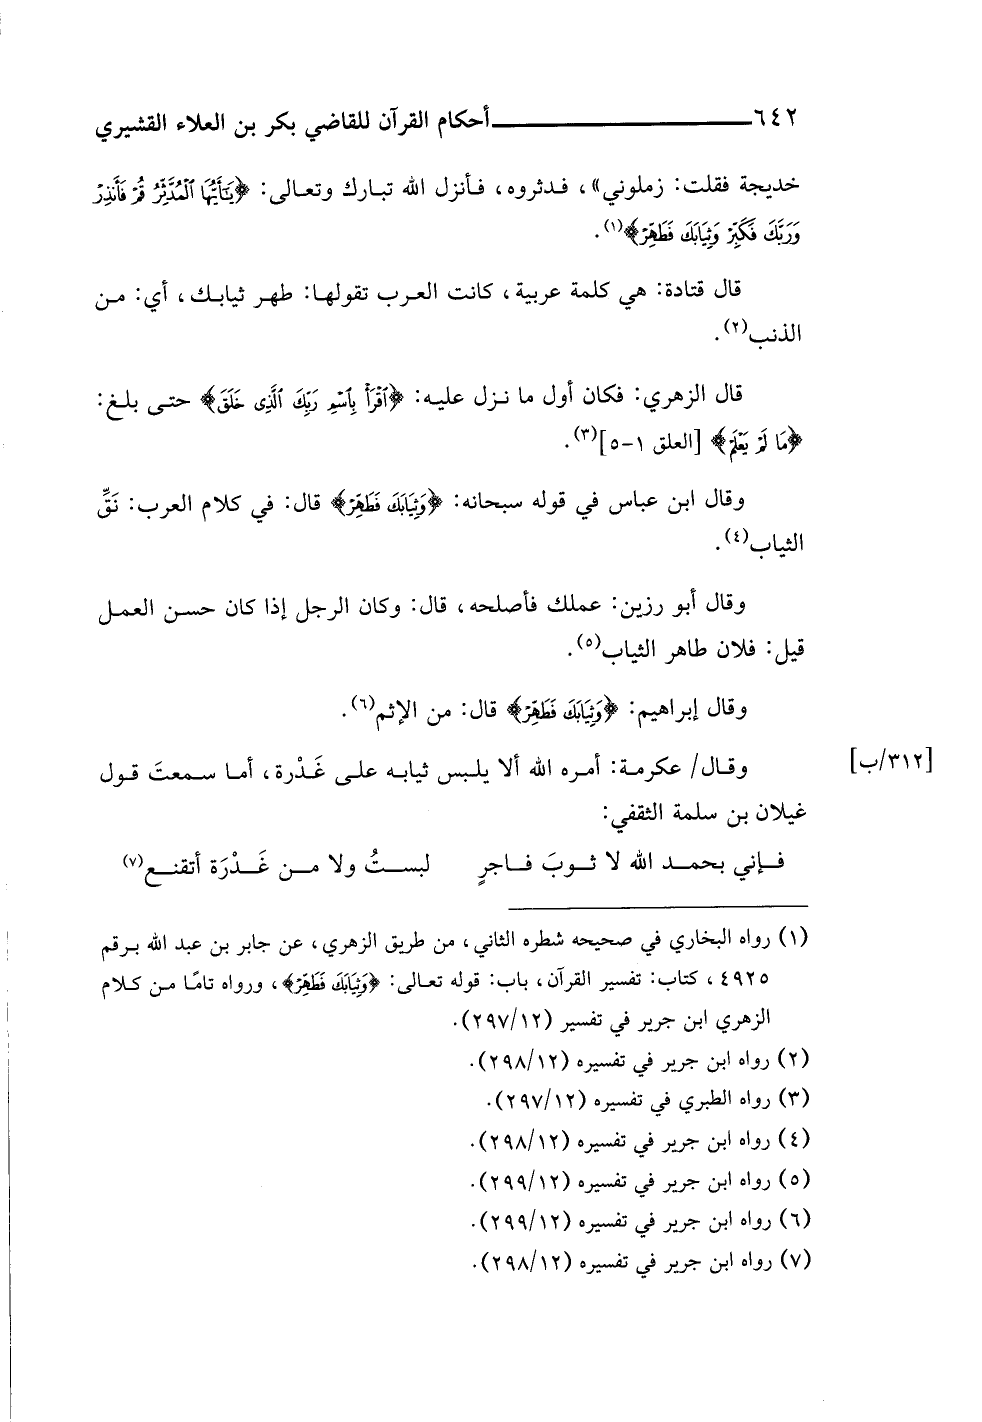 ٦٤٢ أحكام القرآن للقاضي بكر بن العلاء القشيري
خديجة فقلت: زملوني»، فدثروه، فأنزل الله تبارك وتعالى: ﴿يَٰٓأَيُّهَا ٱلْمُدَّثِّرُ قُمْ فَأَنذِرْ
وَرَبَّكَ فَكَبِّرْ وَثِيَابَكَ فَطَهِّرْ﴾(١).
قال قتادة: هي كلمة عربية، كانت العرب تقولها: طهر ثيابك، أي: من
الذنب(٢).
قال الزهري: فكان أول ما نزل عليه: ﴿ٱقْرَأْ بِٱسْمِ رَبِّكَ ٱلَّذِى خَلَقَ﴾ حتى بلغ:
﴿مَا لَمْ يَعْلَمْ﴾ [العلق ١-٥](٣).
وقال ابن عباس في قوله سبحانه: ﴿وَثِيَابَكَ فَطَهِّرْ﴾ قال: في كلام العرب: نَقِّ
الثياب(٤).
وقال أبو رزين: عملك فأصلحه، قال: وكان الرجل إذا كان حسن العمل
قيل: فلان طاهر الثياب(٥).
وقال إبراهيم: ﴿وَثِيَابَكَ فَطَهِّرْ﴾ قال: من الإثم(٦).
وقال/ عكرمة: أمره الله ألا يلبس ثيابه على غَدْرة، أما سمعتَ قول [٣١٢/ب]
غيلان بن سلمة الثقفي:
فإني بحمد الله لا ثوبَ فاجرٍ لبستُ ولا من غَدْرَة أتقنع(٧)
(١) رواه البخاري في صحيحه شطره الثاني، من طريق الزهري، عن جابر بن عبد الله برقم
٤٩٢٥، كتاب: تفسير القرآن، باب: قوله تعالى: ﴿وَثِيَابَكَ فَطَهِّرْ﴾، ورواه تامًا من كلام
الزهري ابن جرير في تفسير (٢٩٧/١٢).
(٢) رواه ابن جرير في تفسيره (٢٩٨/١٢).
(٣) رواه الطبري في تفسيره (٢٩٧/١٢).
(٤) رواه ابن جرير في تفسيره (٢٩٨/١٢).
(٥) رواه ابن جرير في تفسيره (٢٩٩/١٢).
(٦) رواه ابن جرير في تفسيره (٢٩٩/١٢).
(٧) رواه ابن جرير في تفسيره (٢٩٨/١٢).